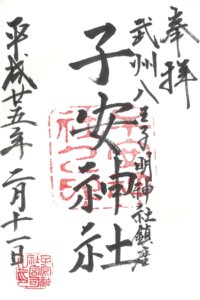 奉拝
武州八王子明神社鎮座
子安神社
平成廿五年二月十一日